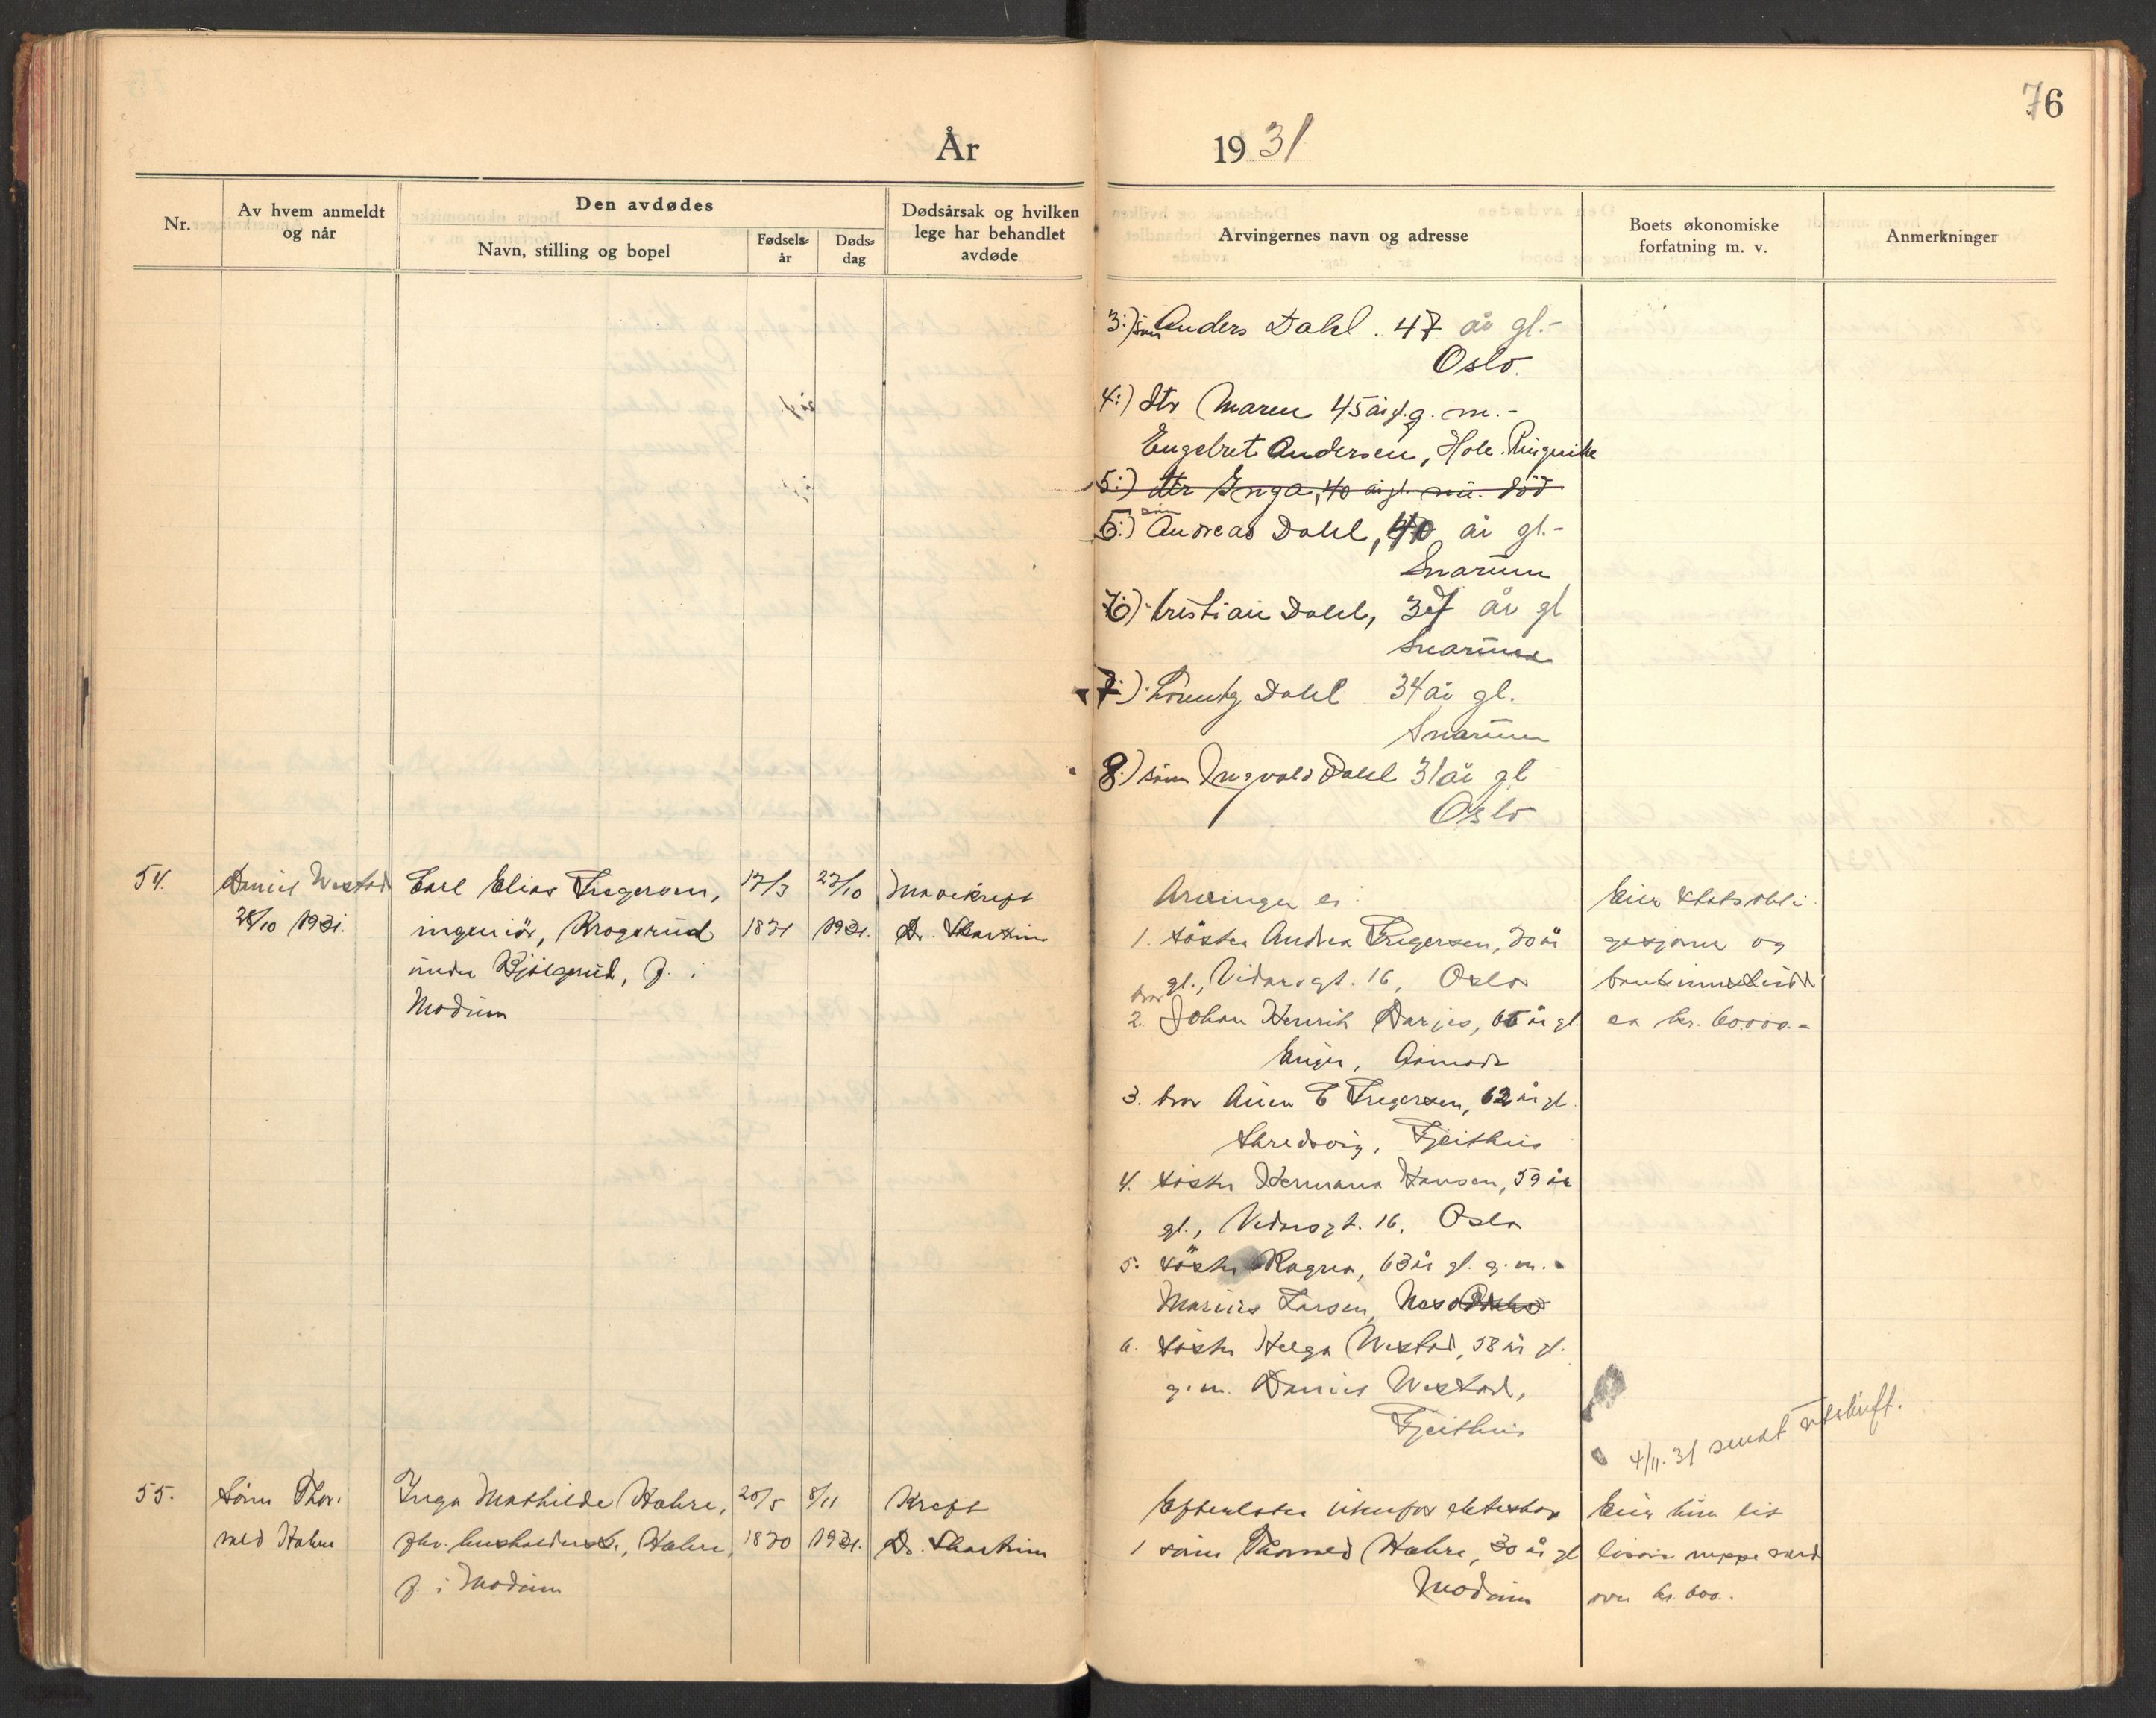 76
År 1931
Nr.
Av hvem anmeldt
og når
Den avdødes
Navn, stilling og bopel
Fødsels-
år
Døds-
dag
Dødsårsak og hvilken
lege har behandlet
avdøde
Arvingernes navn og adresse
Boets økonomiske
forfatning m. v.
Anmerkninger
3:) sønn Anders Dahl. 47 år gl.-
Oslo.
4:) dtr Maren 45 år gl. g. m.-
Engebret Andersen, Hole. Ringerike
5:) dtr Inga, 40 år gl. nu død
5:) sønn Andreas Dahl, 40 år gl.-
Snarum
6) Kristian Dahl, 37 år gl
Snarum
7:) Dahl 34 år gl.
Snarum
8:) sønn Ingvald Dahl 31 år gl
Oslo
54.
Daniel Westad
28/10 1931.
Carl Elias Fregersen,
ingeniör, Krogsrud
under Bjölgerud, g. i
Modum
17/3
1871
27/10
1931.
Mavekreft
Dr. Thartrim
Arvinger er
1. söster Andrea Fregersen, 70 år
gl., Vidarsgt. 16, Oslo
2. bror Johan Henrik Darjes, 65 år gl.
Enger, Aamodt
3. bror E Fregersen, 62 år gl.
Skredsvig, Gjeithus
4. söster Hermana Hansen, 59 år
gl., Vidarsgt. 16, Oslo
5. söster Ragna, 63 år gl. g. m.
Marius Larsen, Nesodden
6. söster Helga Westad, 58 år gl.
g. m. Daniel Westad,
Gjeithus
Eier statsobli-
gasjoner og
bankinnskudd
ca kr. 60.000.-
4/11. 31 sendt utskrift.
55.
Sönn Thor-
vald Hahre
Inga Mathilde Hahre,
fhv. husholderske, Hahre,
g. i Modum
20/5
1870
8/11
1931.
Kreft
Dr. Thartrim
Efterlater utenfor ekteskap
1 sönn Thorvald Hahre, 30 år gl
Modum
Eier kun litt
lösöre neppe verd
over kr. 600.